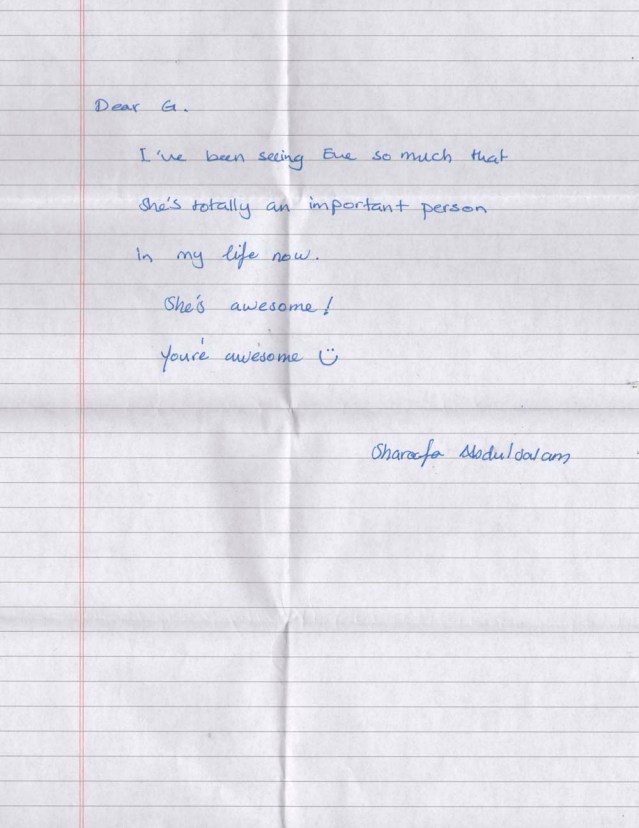 Dear G.
I've been seeing Eve so much that
She's totally an important person
in my life now.
She's awesome!
You're awesome ü
Sharafa Abdulsalam